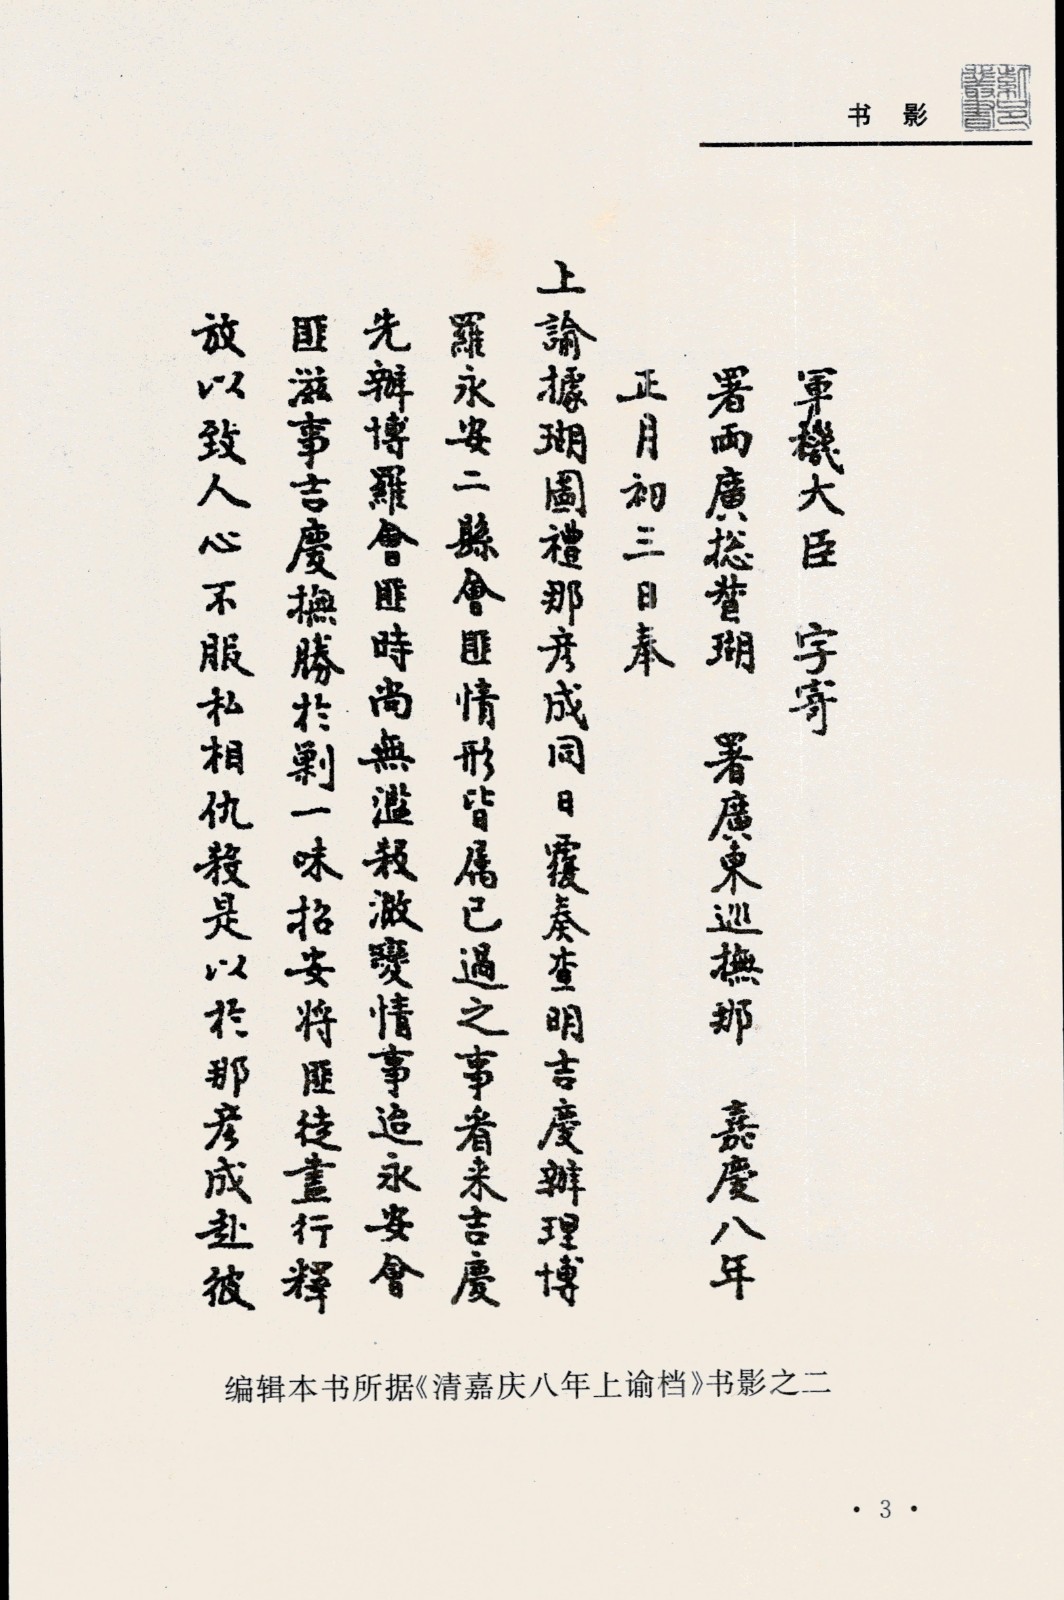 书影
紫邑叢書
軍機大臣　字寄
署兩廣総督瑚　署廣東巡撫那　嘉慶八年
正月初三日奉
上諭據瑚圖禮那彦成同日覆奏查明吉慶辦理博
羅永安二縣會匪情形皆属已過之事看来吉慶
先辦博羅會匪時尚無濫殺激變情事迨永安會
匪滋事吉慶撫勝於剿一味招安将匪徒盡行釋
放以致人心不服私相仇殺是以於那彦成赴彼
编辑本书所据《清嘉庆八年上谕档》书影之二
· 3 ·